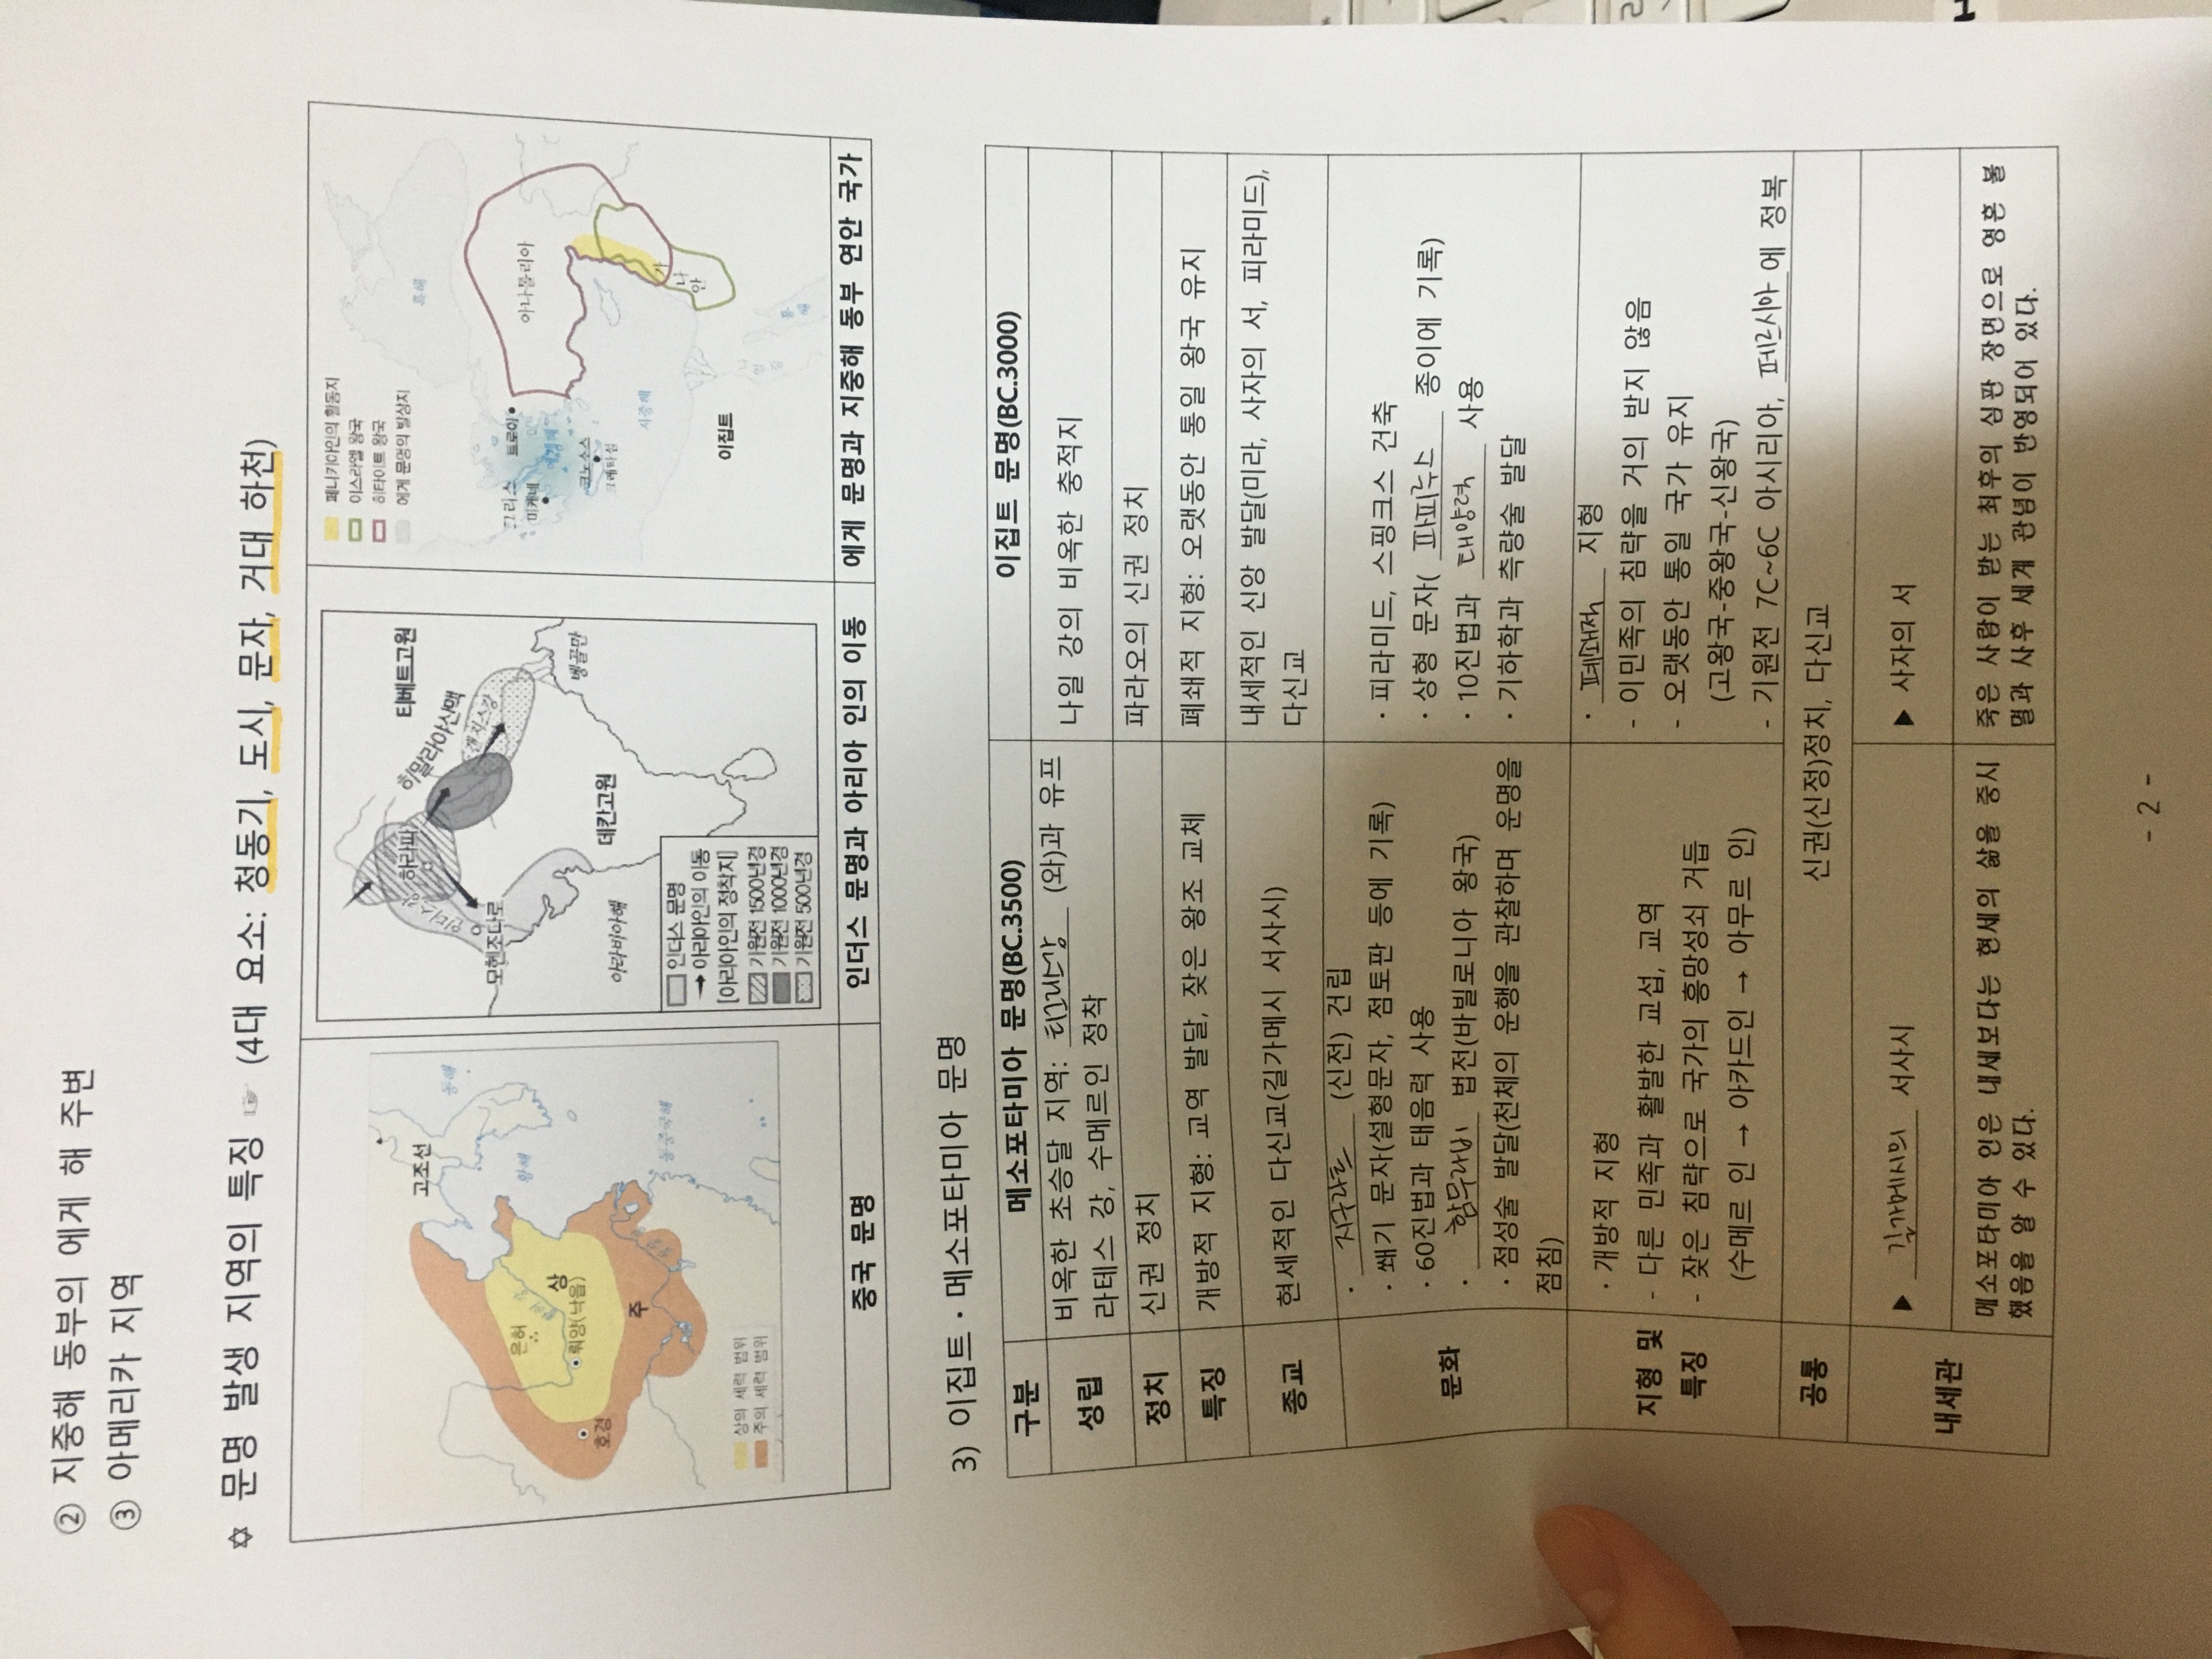 ② 지중해 동부의 에게 해 주변
③ 아메리카 지역
✡ 문명 발생 지역의 특징 ☞ (4대 요소: 청동기, 도시, 문자, 거대 하천)
고조선
동해
은허
황허 강
황해
상
뤄양(낙읍)
호경
주
창장 강
동중국해
상의 세력 범위
주의 세력 범위
중국 문명
티베트고원
하라파
히말라야산맥
인더스강
갠지스강
모헨조다로
벵골만
아라비아해
데칸고원
인더스 문명
→ 아리아인의 이동
[아리아인의 정착지]
기원전 1500년경
기원전 1000년경
기원전 500년경
인더스 문명과 아리아 인의 이동
페니키아인의 활동지
이스라엘 왕국
히타이트 왕국
에게 문명의 발상지
흑해
그리스
트로이
미케네
아나톨리아
에게해
크노소스
크레타섬
지중해
가나안
이집트
나일강
홍해
에게 문명과 지중해 동부 연안 국가
3) 이집트·메소포타미아 문명
구분 메소포타미아 문명(BC.3500) 이집트 문명(BC.3000)
성립
비옥한 초승달 지역: 티그리스강 (와)과 유프
라테스 강, 수메르인 정착
나일 강의 비옥한 충적지
정치 신권 정치 파라오의 신권 정치
특징 개방적 지형: 교역 발달, 잦은 왕조 교체 폐쇄적 지형: 오랫동안 통일 왕국 유지
종교 현세적인 다신교(길가메시 서사시)
내세적인 신앙 발달(미라, 사자의 서, 피라미드),
다신교
문화
· 지구라트 (신전) 건립
· 쐐기 문자(설형문자, 점토판 등에 기록)
· 60진법과 태음력 사용
· 함무라비 법전(바빌로니아 왕국)
· 점성술 발달(천체의 운행을 관찰하며 운명을
점침)
· 피라미드, 스핑크스 건축
· 상형 문자( 파피루스 종이에 기록)
· 10진법과 태양력 사용
· 기하학과 측량술 발달
지형 및
특징
· 개방적 지형
- 다른 민족과 활발한 교섭, 교역
- 잦은 침략으로 국가의 흥망성쇠 거듭
(수메르 인 → 아카드인 → 아무르 인)
· 폐쇄적 지형
- 이민족의 침략을 거의 받지 않음
- 오랫동안 통일 국가 유지
(고왕국-중왕국-신왕국)
- 기원전 7C~6C 아시리아, 페르시아 에 정복
공통 신권(신정)정치, 다신교
내세관
▶ 길가메시의 서사시
▶ 사자의 서
메소포타미아 인은 내세보다는 현세의 삶을 중시
했음을 알 수 있다.
죽은 사람이 받는 최후의 심판 장면으로 영혼 불
멸과 사후 세계 관념이 반영되어 있다.
- 2 -